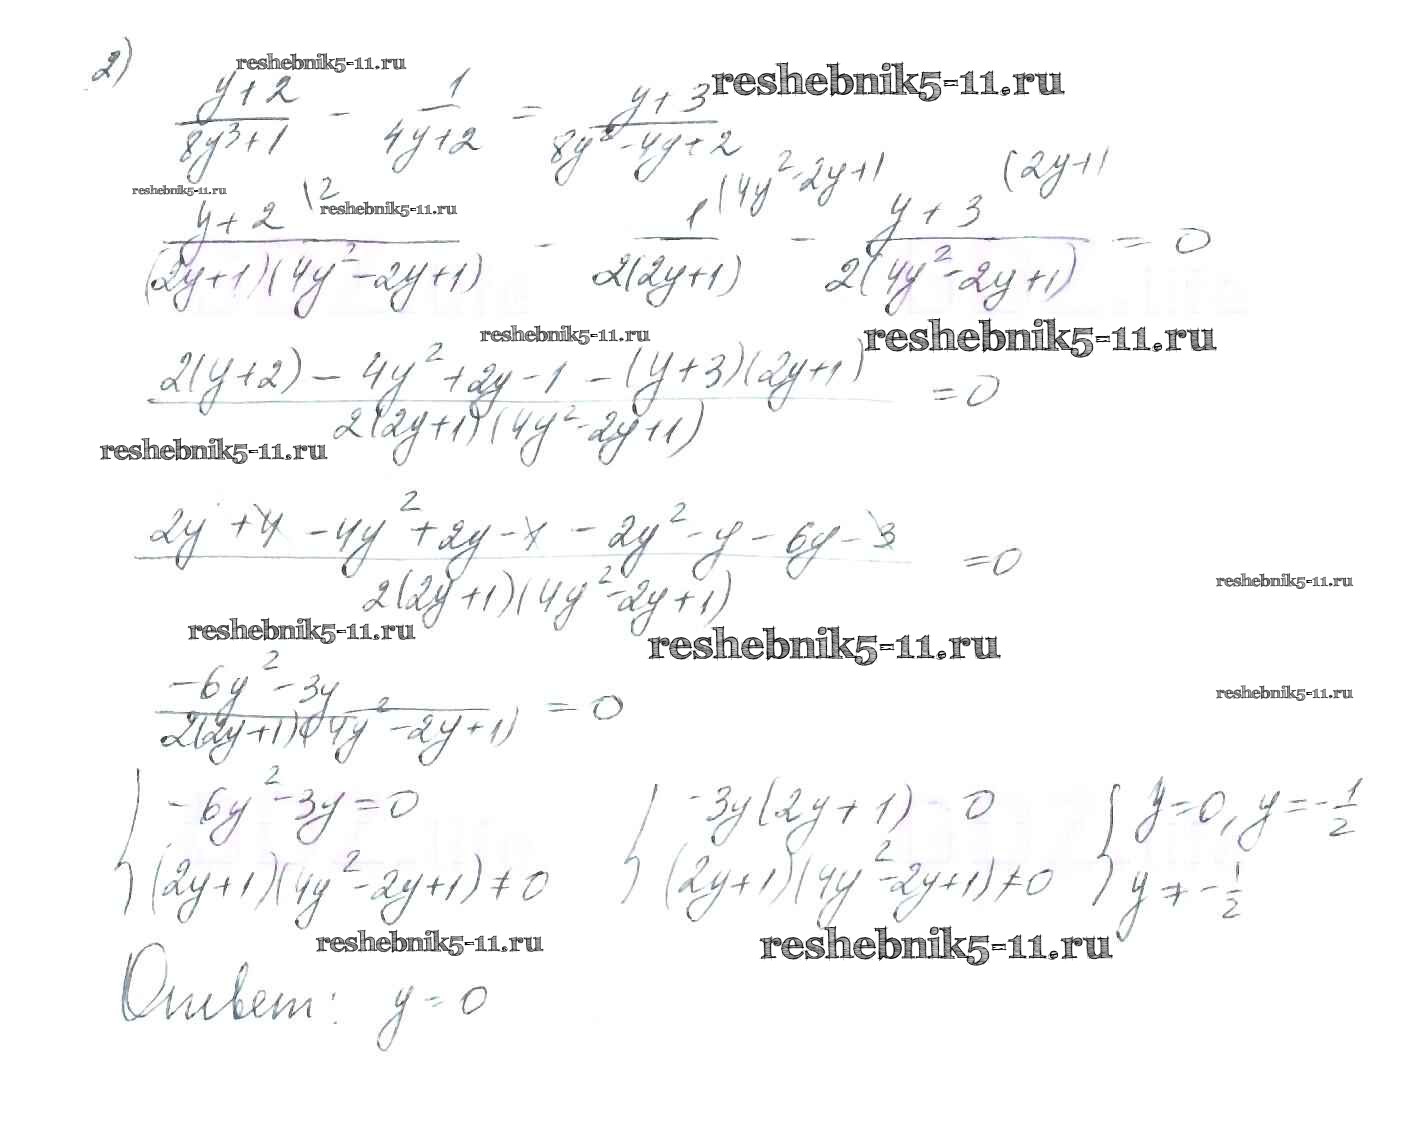 2)
reshebnik5-11.ru
reshebnik5-11.ru
(y+2)/(8y³+1) - 1/(4y+2) = (y+3)/(8y²-4y+2)
reshebnik5-11.ru
reshebnik5-11.ru
(y+2)\2/((2y+1)(4y²-2y+1)) - 1(4y²-2y+1/(2(2y+1)) - (y+3)(2y+1)/(2(4y²-2y+1)) = 0
reshebnik5-11.ru
reshebnik5-11.ru
(2(y+2) - 4y²+2y-1 - (y+3)(2y+1))/(2(2y+1)(4y²-2y+1)) = 0
reshebnik5-11.ru
(2y+4 - 4y²+2y-1 - 2y²-y-6y-3)/(2(2y+1)(4y²-2y+1)) = 0
reshebnik5-11.ru
reshebnik5-11.ru
reshebnik5-11.ru
(-6y²-3y)/(2(2y+1)(4y²-2y+1)) = 0
reshebnik5-11.ru
{ -6y²-3y=0 { -3y(2y+1) 0 { y=0, y=-1/2
(2y+1)(4y²-2y+1)≠0 (2y+1)(4y²-2y+1)≠0 y≠-1/2
reshebnik5-11.ru
reshebnik5-11.ru
Ответ: y=0